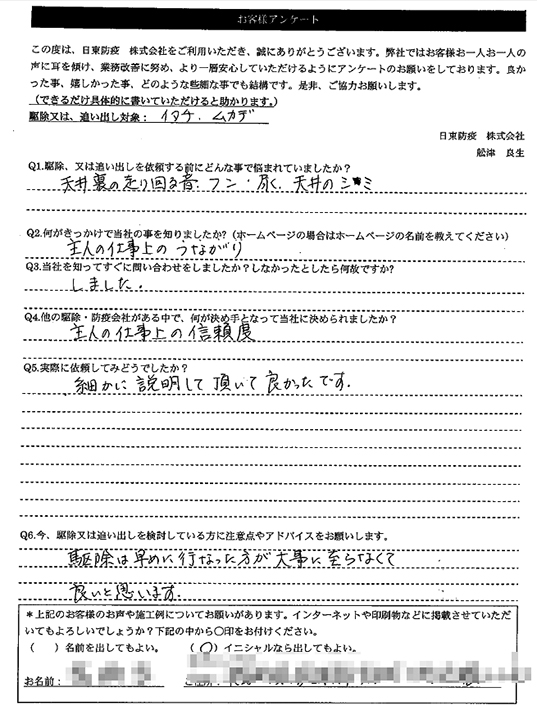 お客様アンケート
この度は、日東防疫 株式会社をご利用いただき、誠にありがとうございます。弊社ではお客様お一人お一人の
声に耳を傾け、業務改善に努め、より一層安心していただけるようにアンケートのお願いをしております。良か
った事、嬉しかった事、どのような些細な事でも結構です。是非、ご協力お願いします。
(できるだけ具体的に書いていただけると助かります。)
駆除又は、追い出し対象: イタチ、ムカデ
日東防疫 株式会社
舩津 良生
Q1.駆除、又は追い出しを依頼する前にどんな事で悩まれていましたか?
天井裏の走り回る音 フン・尿、天井のシミ
Q2.何がきっかけで当社の事を知りましたか?(ホームページの場合はホームページの名前を教えてください)
主人の仕事上のつながり
Q3.当社を知ってすぐに問い合わせをしましたか?しなかったとしたら何故ですか?
しました.
Q4.他の駆除・防疫会社がある中で、何が決め手となって当社に決められましたか?
主人の仕事上の信頼度
Q5.実際に依頼してみどうでしたか?
細かに説明して頂いて良かったです.
Q6.今、駆除又は追い出しを検討している方に注意点やアドバイスをお願いします。
駆除は早めに行なった方が大事に至らなくて
良いと思います.
*上記のお客様のお声や施工例についてお願いがあります。インターネットや印刷物などに掲載させていただ
いてもよろしいでしょうか?下記の中から〇印をお付けください。
( )名前を出してもよい。 (〇)イニシャルなら出してもよい。
お名前: